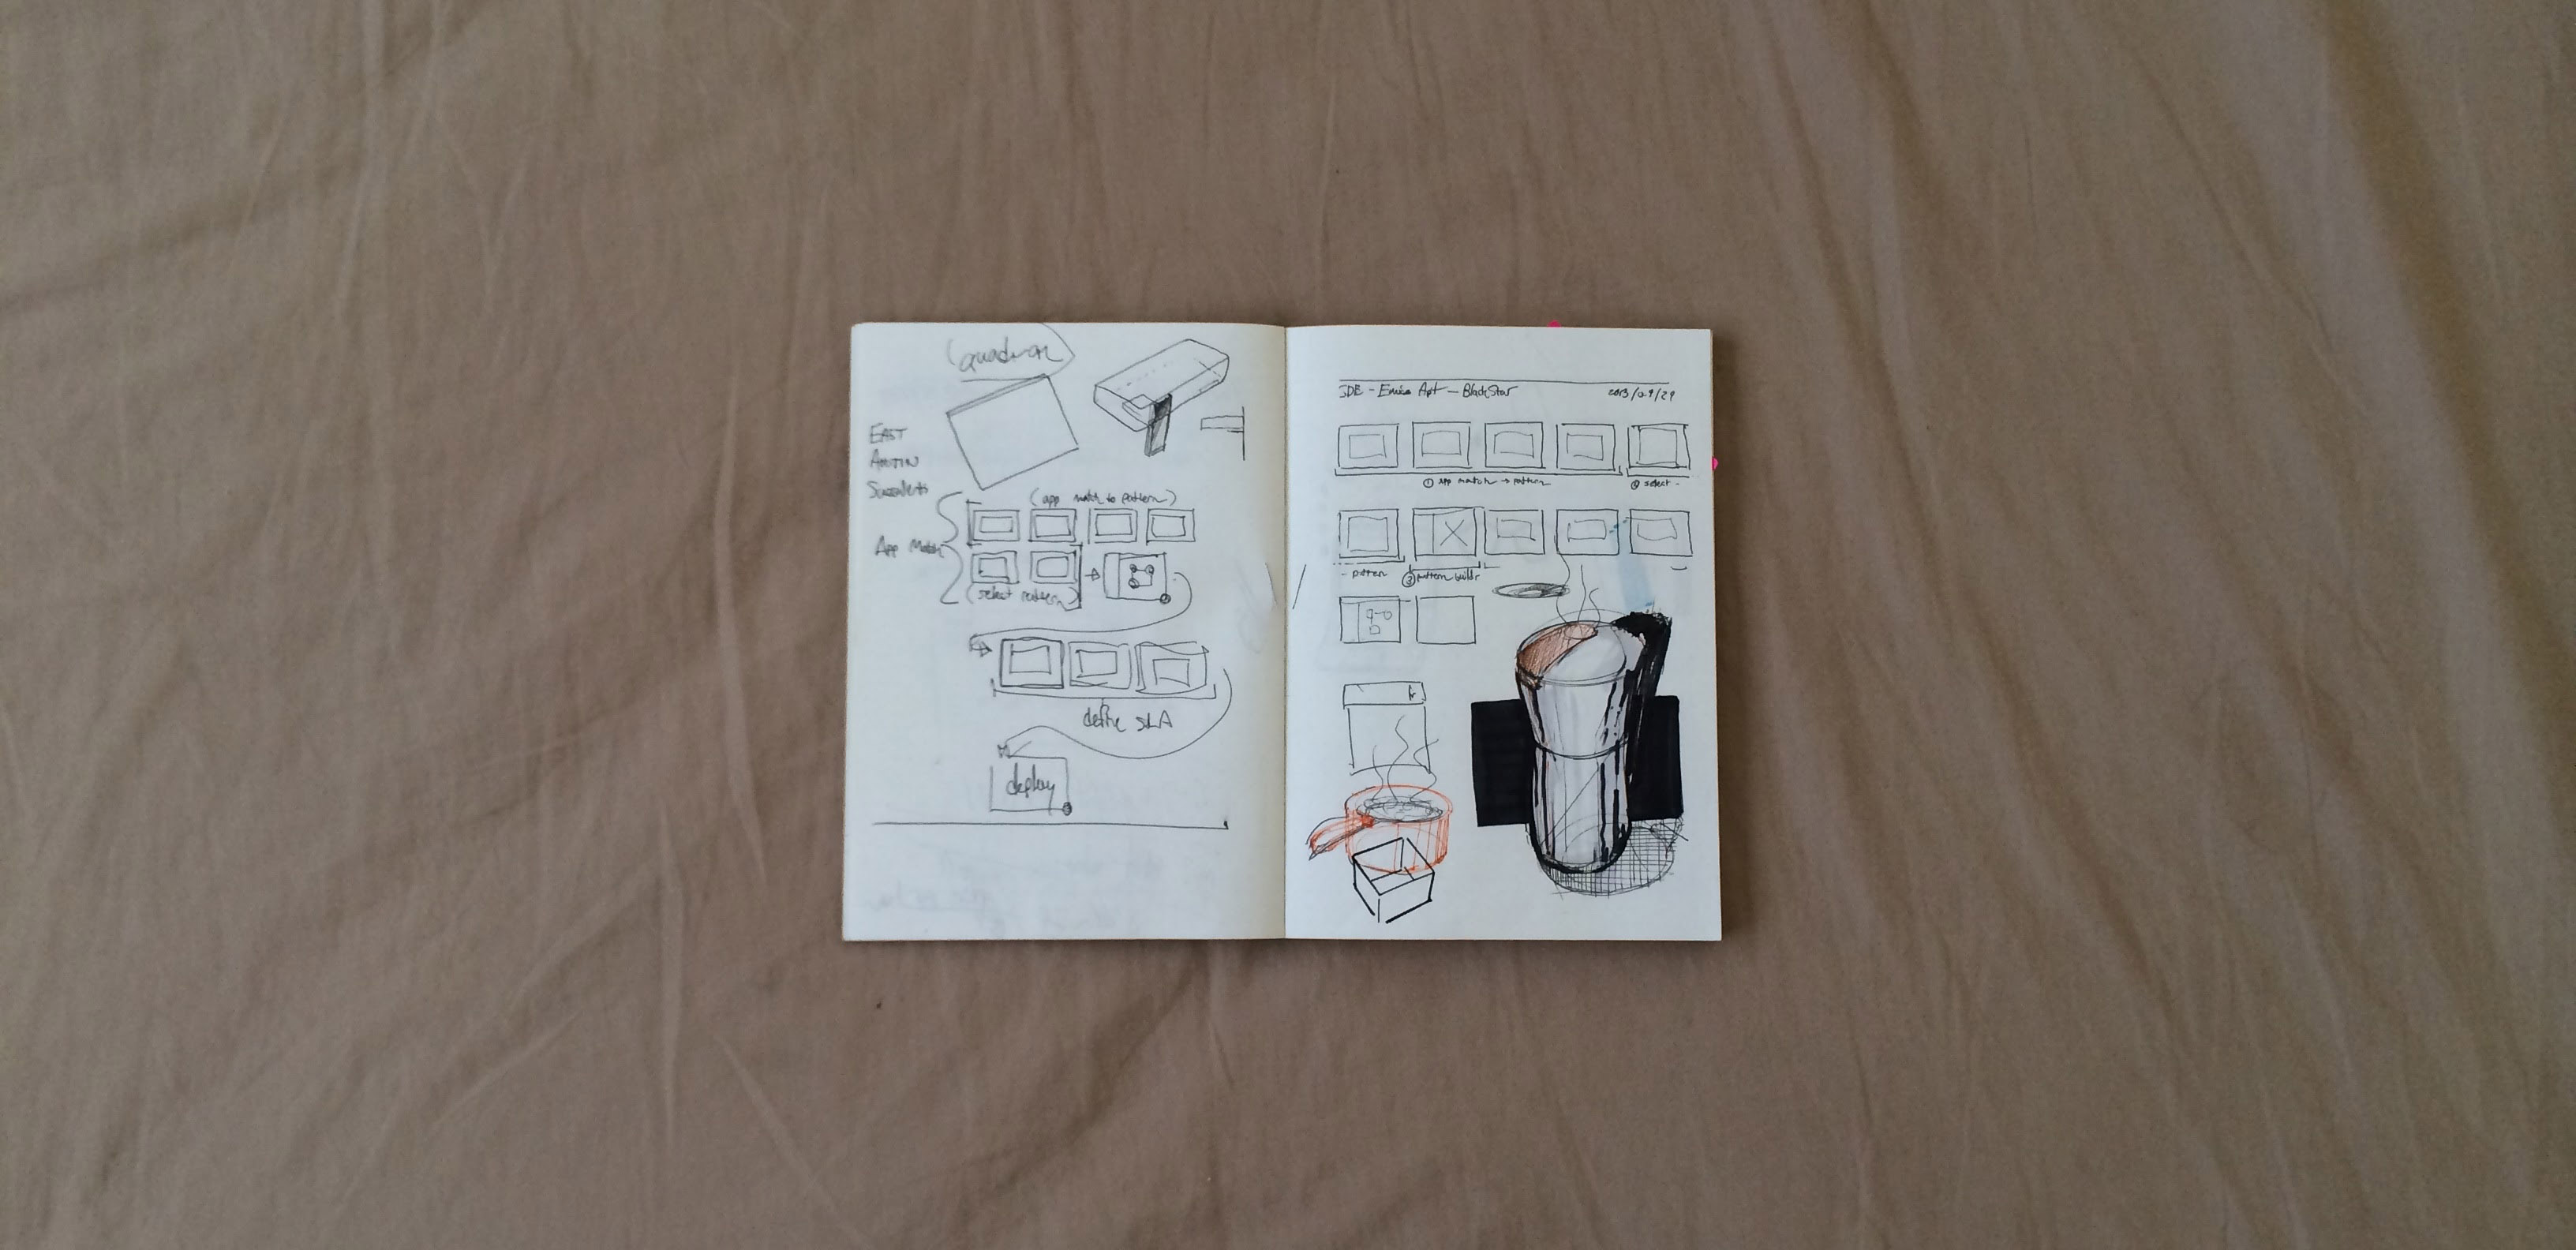 EAST
AUSTIN
Succulents
(app match to pattern)
App Match
(select pattern)
define SLA
deploy
BlackStar
2013/09/29
① app match → pattern
② select -
- pattern
③ pattern builder